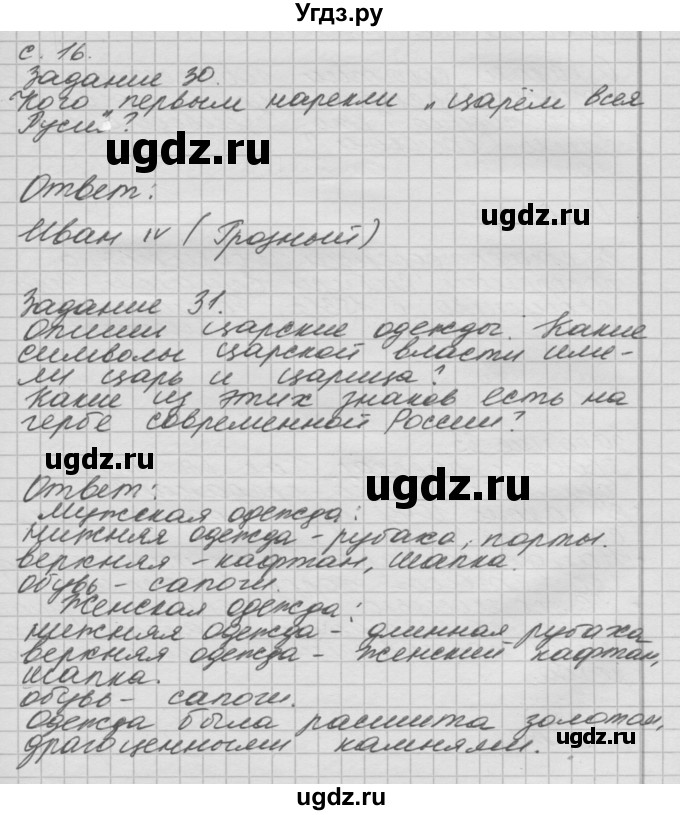 ГДЗ.РУ
с. 16.
Задание 30.
Кого первым нарекли „царём всея
Руси"?
ugdz.ru
Ответ:
ugdz.ru
Иван IV (Грозный)
Задание 31.
Опиши царские одежды. Какие
символы царской власти име-
ли царь и царица?
Какие из этих знаков есть на
гербе современной России?
ugdz.ru
ugdz.ru
Ответ:
Мужская одежда:
нижняя одежда - рубаха, порты.
верхняя - кафтан, шапка.
обувь - сапоги.
Женская одежда:
нижняя одежда - длинная рубаха
верхняя одежда - женский кафтан,
шапка.
обувь - сапоги.
Одежда была расшита золотом,
драгоценными камнями.
ugdz.ru
ugdz.ru